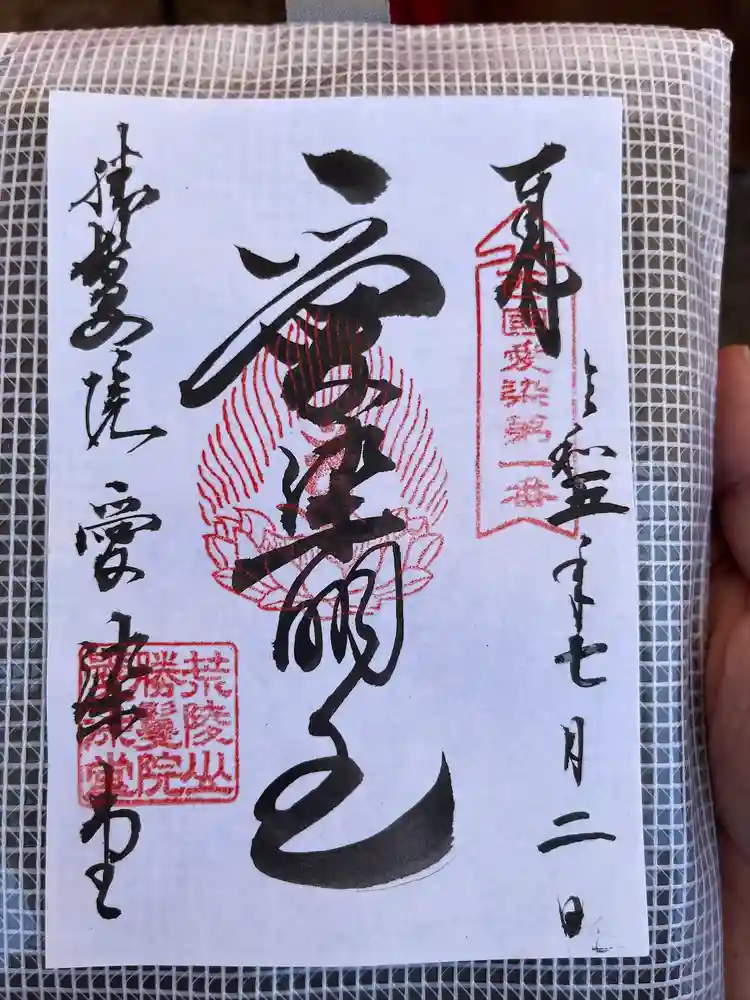 奉拝
令和五年七月二日
西国愛染第一番
愛染明王
勝鬘院愛染堂
荒陵山
勝鬘院
愛染堂